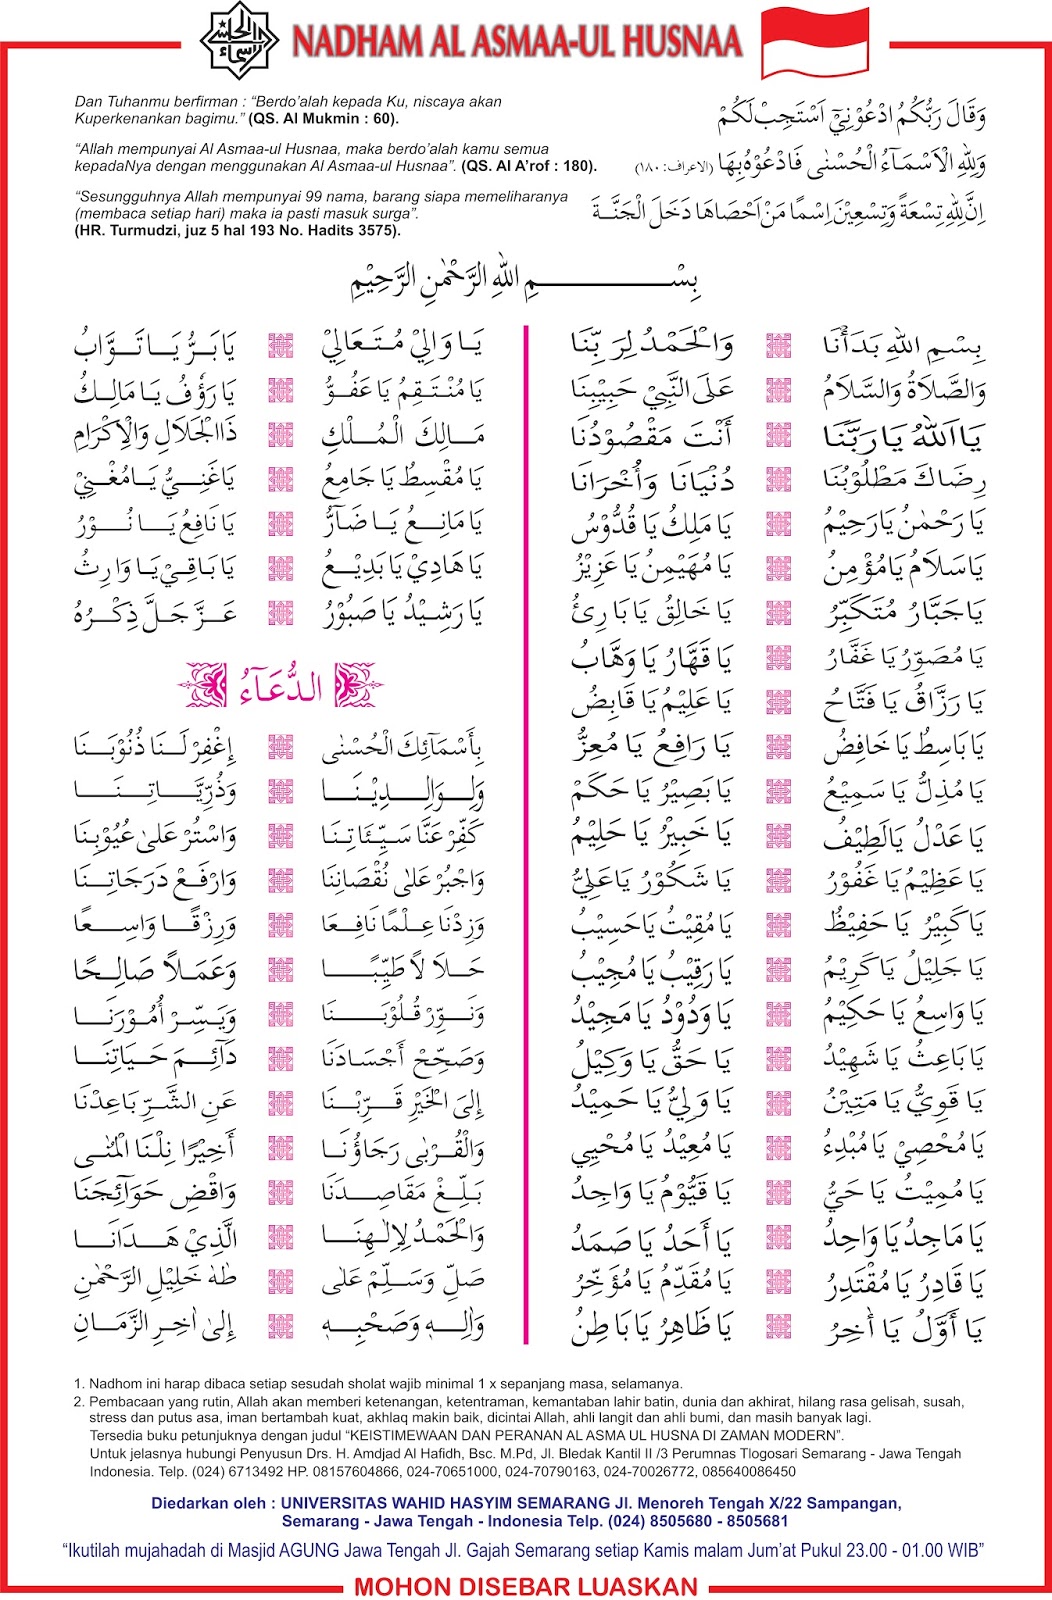 NADHAM AL ASMAA-UL HUSNAA
Dan Tuhanmu berfirman : “Berdo’alah kepada Ku, niscaya akan
Kuperkenankan bagimu.” (QS. Al Mukmin : 60).
وَقَالَ رَبُّكُمُ ادْعُوْنِيْٓ اَسْتَجِبْ لَكُمْ
“Allah mempunyai Al Asmaa-ul Husnaa, maka berdo’alah kamu semua
kepadaNya dengan menggunakan Al Asmaa-ul Husnaa”. (QS. Al A’rof : 180).
وَلِلّٰهِ الْاَسْمَآءُ الْحُسْنٰى فَادْعُوْهُ بِهَا (الاعراف: ١٨٠)
“Sesungguhnya Allah mempunyai 99 nama, barang siapa memeliharanya
(membaca setiap hari) maka ia pasti masuk surga”.
(HR. Turmudzi, juz 5 hal 193 No. Hadits 3575).
اِنَّ لِلّٰهِ تِسْعَةً وَتِسْعِيْنَ اِسْمًا مَنْ اَحْصَاهَا دَخَلَ الْجَنَّةَ
بِسْمِ اللهِ الرَّحْمٰنِ الرَّحِيْمِ
بِسْمِ اللهِ بَدَأْنَا وَالْحَمْدُ لِرَبِّنَا
وَالصَّلَاةُ وَالسَّلَامُ عَلَى النَّبِيْ حَبِيْبِنَا
يَا اَللهُ يَا رَبَّنَا أَنْتَ مَقْصُوْدُنَا
رِضَاكَ مَطْلُوْبُنَا دُنْيَانَا وَأُخْرَانَا
يَا رَحْمٰنُ يَا رَحِيْمُ يَا مَلِكُ يَا قُدُّوْسُ
يَا سَلَامُ يَا مُؤْمِنُ يَا مُهَيْمِنُ يَا عَزِيْزُ
يَا جَبَّارُ مُتَكَبِّرُ يَا خَالِقُ يَا بَارِئُ
يَا مُصَوِّرُ يَا غَفَّارُ يَا قَهَّارُ يَا وَهَّابُ
يَا رَزَّاقُ يَا فَتَّاحُ يَا عَلِيْمُ يَا قَابِضُ
يَا بَاسِطُ يَا خَافِضُ يَا رَافِعُ يَا مُعِزُّ
يَا مُذِلُّ يَا سَمِيْعُ يَا بَصِيْرُ يَا حَكَمُ
يَا عَدْلُ يَا لَطِيْفُ يَا خَبِيْرُ يَا حَلِيْمُ
يَا عَظِيْمُ يَا غَفُوْرُ يَا شَكُوْرُ يَا عَلِيُّ
يَا كَبِيْرُ يَا حَفِيْظُ يَا مُقِيْتُ يَا حَسِيْبُ
يَا جَلِيْلُ يَا كَرِيْمُ يَا رَقِيْبُ يَا مُجِيْبُ
يَا وَاسِعُ يَا حَكِيْمُ يَا وَدُوْدُ يَا مَجِيْدُ
يَا بَاعِثُ يَا شَهِيْدُ يَا حَقُّ يَا وَكِيْلُ
يَا قَوِيُّ يَا مَتِيْنُ يَا وَلِيُّ يَا حَمِيْدُ
يَا مُحْصِيْ يَا مُبْدِءُ يَا مُعِيْدُ يَا مُحْيِي
يَا مُمِيْتُ يَا حَيُّ يَا قَيُّوْمُ يَا وَاجِدُ
يَا مَاجِدُ يَا وَاحِدُ يَا أَحَدُ يَا صَمَدُ
يَا قَادِرُ يَا مُقْتَدِرُ يَا مُقَدِّمُ يَا مُؤَخِّرُ
يَا أَوَّلُ يَا أٰخِرُ يَا ظَاهِرُ يَا بَاطِنُ
يَا وَالِيْ مُتَعَالِيْ يَا بَرُّ يَا تَوَّابُ
يَا مُنْتَقِمُ يَا عَفُوُّ يَا رَؤُفُ يَا مَالِكُ
مَالِكَ الْمُلْكِ ذَا الْجَلَالِ وَالْإِكْرَامِ
يَا مُقْسِطُ يَا جَامِعُ يَا غَنِيُّ يَا مُغْنِيْ
يَا مَانِعُ يَا ضَآرُّ يَا نَافِعُ يَا نُوْرُ
يَا هَادِيْ يَا بَدِيْعُ يَا بَاقِيْ يَا وَارِثُ
يَا رَشِيْدُ يَا صَبُوْرُ عَزَّ جَلَّ ذِكْرُهُ
الدُّعَآءُ
بِأَسْمَآئِكَ الْحُسْنٰى إِغْفِرْ لَنَا ذُنُوْبَنَا
وَلِوَالِدِيْنَا وَذُرِّيَّاتِنَا
كَفِّرْ عَنَّا سَيِّئَاتِنَا وَاسْتُرْ عَلٰى عُيُوْبِنَا
وَاجْبُرْ عَلٰى نُقْصَانِنَا وَارْفَعْ دَرَجَاتِنَا
وَزِدْنَا عِلْمًا نَافِعَا وَرِزْقًا وَاسِعًا
حَلَالًا طَيِّبًا وَعَمَلًا صَالِحًا
وَنَوِّرْ قُلُوْبَنَا وَيَسِّرْ أُمُوْرَنَا
وَصَحِّحْ أَجْسَادَنَا دَآئِمَ حَيَاتِنَا
إِلَى الْخَيْرِ قَرِّبْنَا عَنِ الشَّرِّ بَاعِدْنَا
وَالْقُرْبٰى رَجَاؤُنَا أَخِيْرًا نِلْنَا الْمُنٰى
بَلِّغْ مَقَاصِدَنَا وَاقْضِ حَوَآئِجَنَا
وَالْحَمْدُ لِإِلٰهِنَا الَّذِيْ هَدَانَا
صَلِّ وَسَلِّمْ عَلٰى طٰهٰ خَلِيْلِ الرَّحْمٰنِ
وَاٰلِهٖ وَصَحْبِهٖ إِلٰى اٰخِرِ الزَّمَانِ
1. Nadhom ini harap dibaca setiap sesudah sholat wajib minimal 1 x sepanjang masa, selamanya.
2. Pembacaan yang rutin, Allah akan memberi ketenangan, ketentraman, kemantaban lahir batin, dunia dan akhirat, hilang rasa gelisah, susah,
stress dan putus asa, iman bertambah kuat, akhlaq makin baik, dicintai Allah, ahli langit dan ahli bumi, dan masih banyak lagi.
Tersedia buku petunjuknya dengan judul “KEISTIMEWAAN DAN PERANAN AL ASMA UL HUSNA DI ZAMAN MODERN”.
Untuk jelasnya hubungi Penyusun Drs. H. Amdjad Al Hafidh, Bsc. M.Pd, Jl. Bledak Kantil II /3 Perumnas Tlogosari Semarang - Jawa Tengah
Indonesia. Telp. (024) 6713492 HP. 08157604866, 024-70651000, 024-70790163, 024-70026772, 085640086450
Diedarkan oleh : UNIVERSITAS WAHID HASYIM SEMARANG Jl. Menoreh Tengah X/22 Sampangan,
Semarang - Jawa Tengah - Indonesia Telp. (024) 8505680 - 8505681
“Ikutilah mujahadah di Masjid AGUNG Jawa Tengah Jl. Gajah Semarang setiap Kamis malam Jum’at Pukul 23.00 - 01.00 WIB”
MOHON DISEBAR LUASKAN